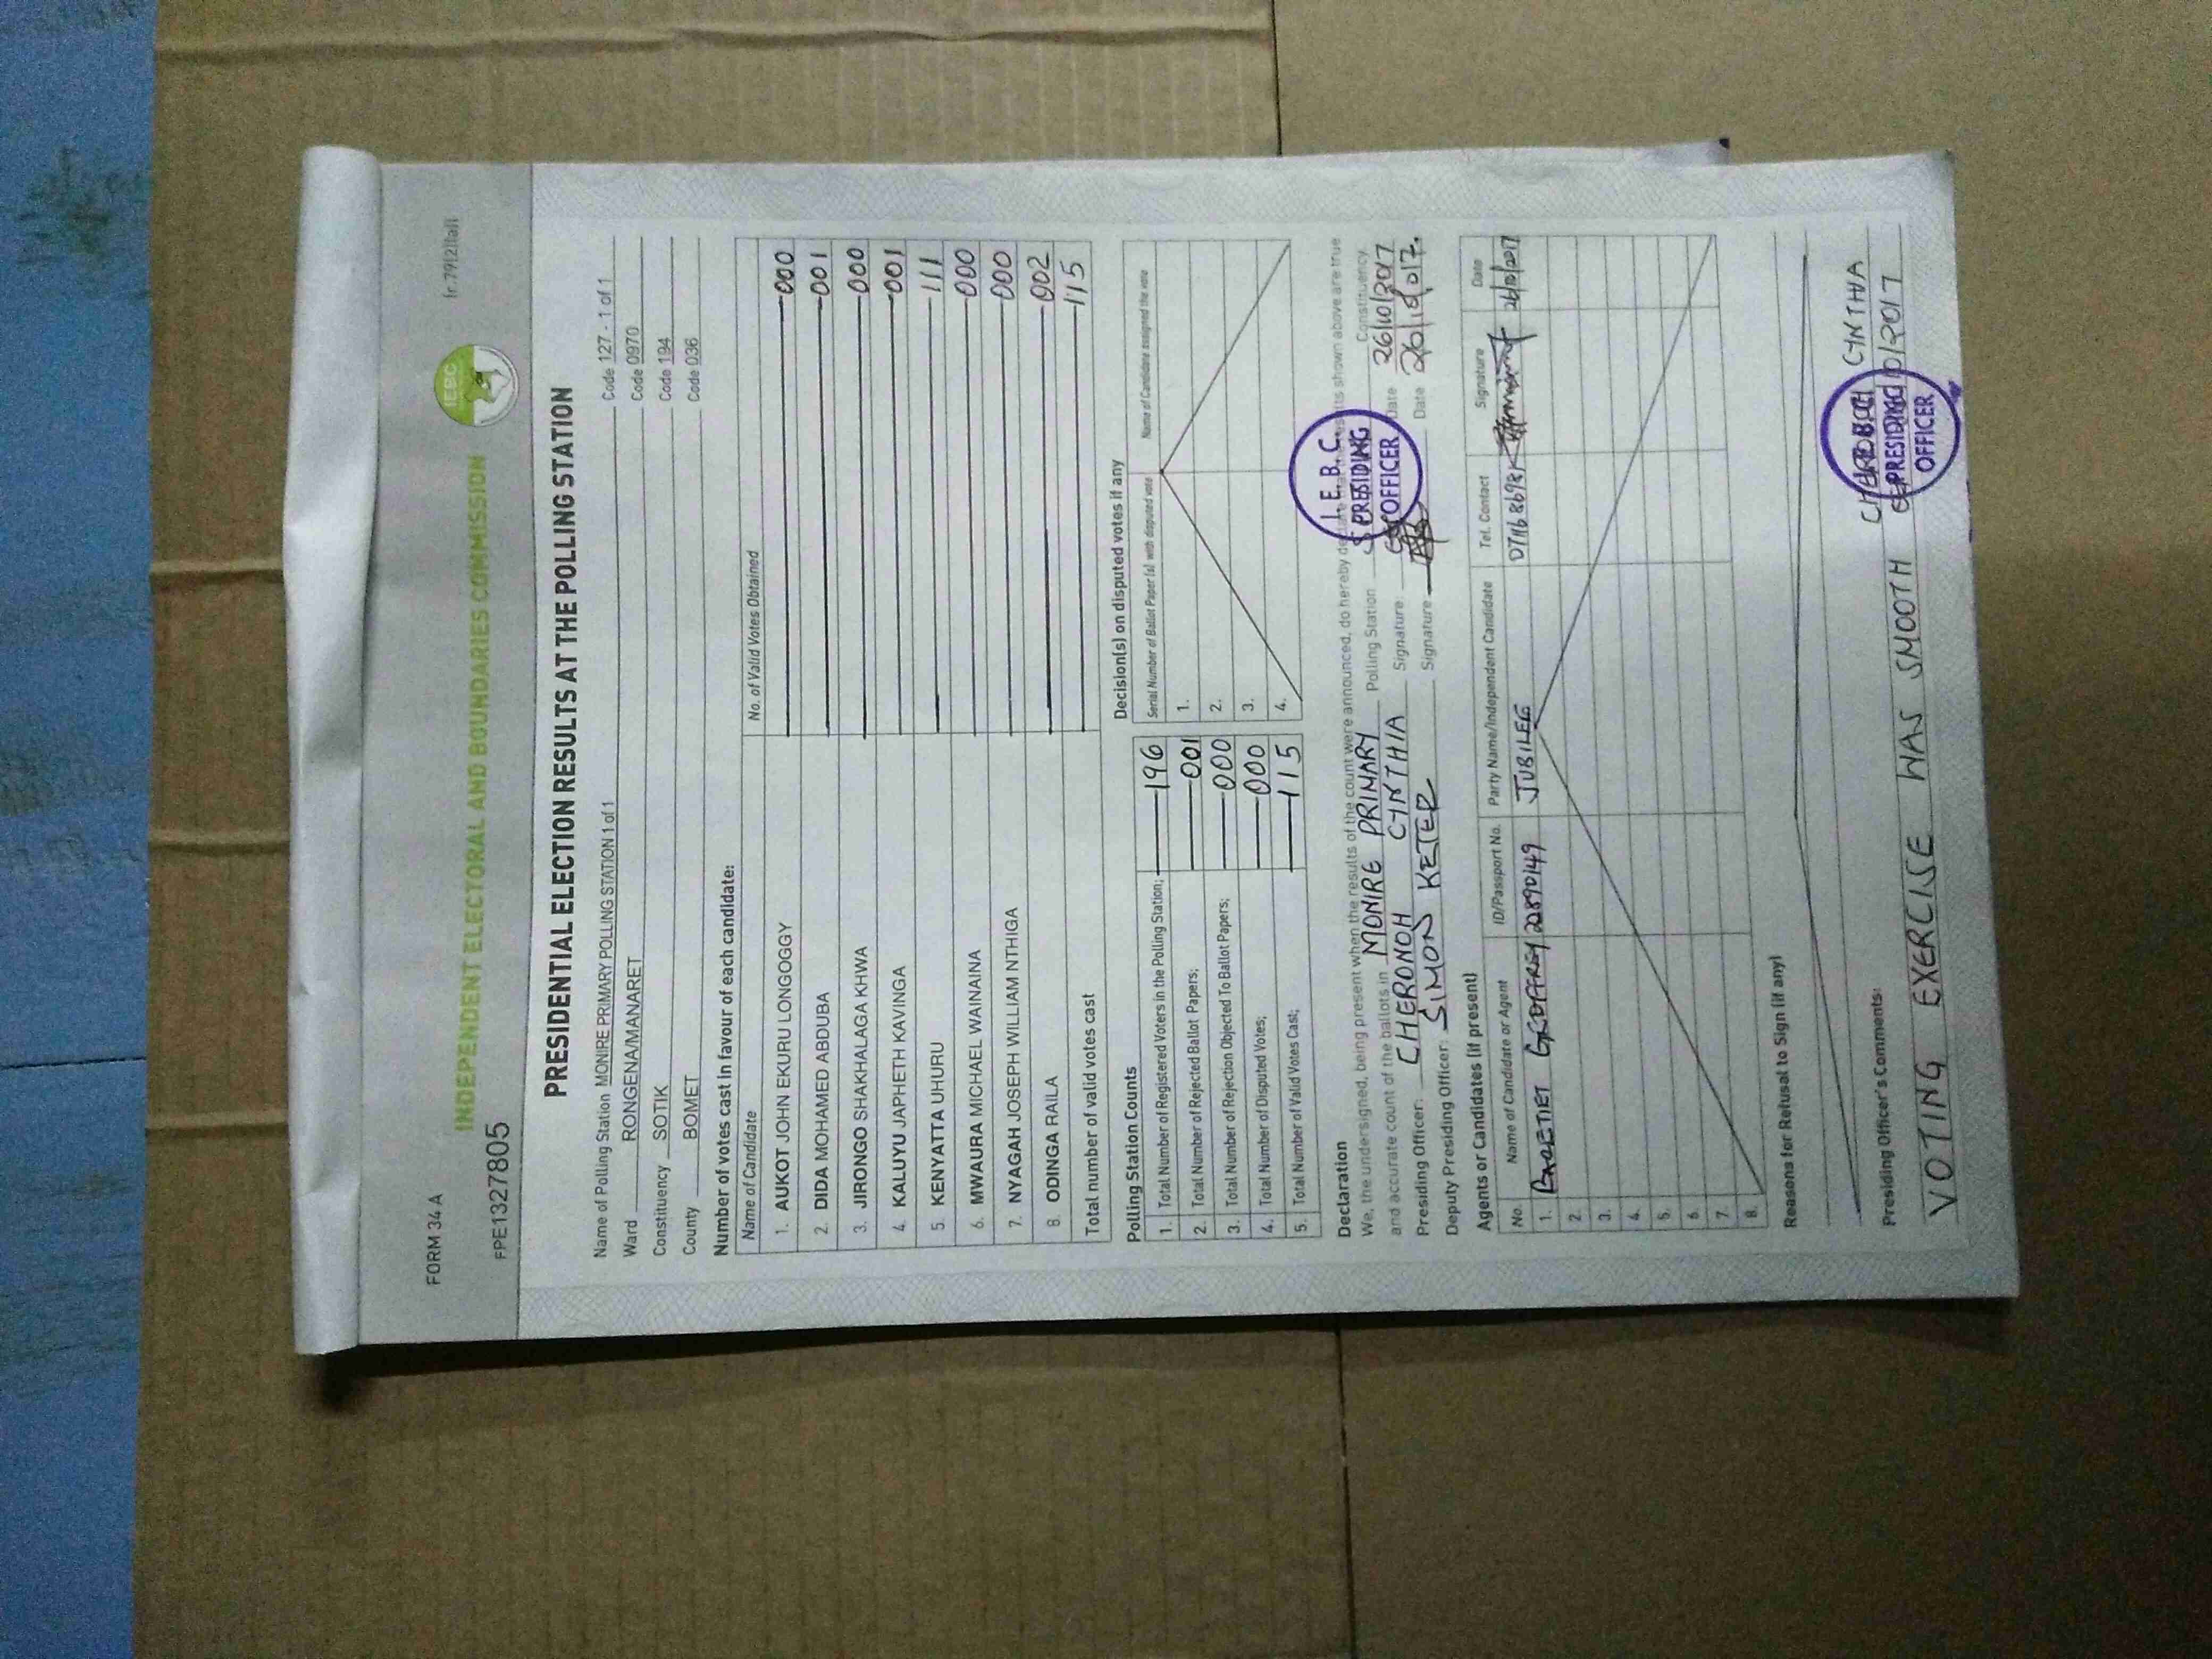 FORM 34 A
r.79(2)(a))
INDEPENDENT ELECTORAL AND BOUNDARIES COMMISSION
IEBC
FPE1327805
PRESIDENTIAL ELECTION RESULTS AT THE POLLING STATION
Name of Polling Station MONIRE PRIMARY POLLING STATION 1 of 1 Code 127 - 1 of 1
Ward RONGENA/MANARET Code 0970
Constituency SOTIK Code 194
County BOMET Code 036
Number of votes cast in favour of each candidate:
Name of Candidate No. of Valid Votes Obtained
1. AUKOT JOHN EKURU LONGOGGY 000
2. DIDA MOHAMED ABDUBA 001
3. JIRONGO SHAKHALAGA KHWA 000
4. KALUYU JAPHETH KAVINGA 001
5. KENYATTA UHURU 111
6. MWAURA MICHAEL WAINAINA 000
7. NYAGAH JOSEPH WILLIAM NTHIGA 000
8. ODINGA RAILA 002
Total number of valid votes cast 115
Polling Station Counts
1. Total Number of Registered Voters in the Polling Station; 196
2. Total Number of Rejected Ballot Papers; 001
3. Total Number of Rejection Objected To Ballot Papers; 000
4. Total Number of Disputed Votes; 000
5. Total Number of Valid Votes Cast; 115
Decision(s) on disputed votes if any
Serial Number of Ballot Paper (s) with disputed vote Name of Candidate assigned the vote
1.
2.
3.
4.
Declaration
We, the undersigned, being present when the results of the count were announced, do hereby shown above are true
and accurate count of the ballots in MONIRE PRIMARY Polling Station Constituency
Presiding Officer: CHERONOH CYNTHIA Signature: Date 26/10/2017
Deputy Presiding Officer: SIMON KETER Signature Date 26/10/2017.
I.E.B.C.
PRESIDING
OFFICER
Agents or Candidates (if present)
No. Name of Candidate or Agent ID/Passport No. Party Name/Independent Candidate Tel. Contact Signature Date
1. GEOFFREY 22890149 JUBILEE 26/10/2017
2.
3.
4.
5.
6.
7.
8.
Reasons for Refusal to Sign (if any)
Presiding Officer's Comments:
CYNTHIA
VOTING EXERCISE WAS SMOOTH
PRESIDING
OFFICER